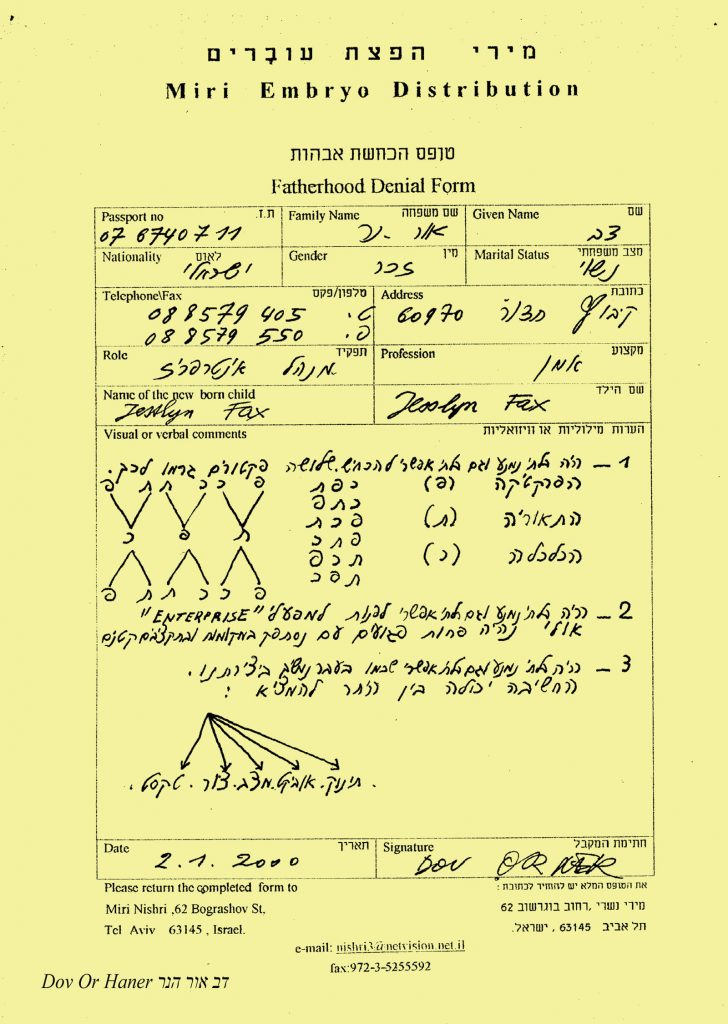 מירי הפצת עוּבָּרים
Miri Embryo Distribution
טופס הכחשת אבהות
Fatherhood Denial Form
Passport no ת.ז.
07 6740711
Family Name שם משפחה
Given Name שם
דב
Nationality לאום
ישראלי
Gender מין
זכר
Marital Status מצב משפחתי
נשוי
Telephone\Fax טלפון/פקס
08 8579 405 ט.
08 8579 550 פ.
Address כתובת
קיבוץ חצור 60970
Role תפקיד
מנהל אינטרפרייז
Profession מקצוע
אמן
Name of the new born child שם הילד
Jesslyn Fax
Jesslyn Fax
Visual or verbal comments הערות מילוליות או וויזואליות
1 – היה בלתי נמנע וגם בלתי אפשרי להכחיש. שלושה פקטורים גרמו לכך.
הפרקטיקה (פ)
התאוריה (ת)
הכלכלה (כ)
כ פ ת
כ ת פ
פ כ ת
פ ת כ
ת כ פ
ת פ כ
פ ת ת כ כ פ
כ פ ת
פ ת ת כ כ פ
2 – היה בלתי נמנע וגם בלתי אפשרי לפנות למפעלי "ENTERPRISE"
אולי נהיה פחות פגועים עם נסתפק במקומות ובתקציבים קטנים
3 – היה בלתי נמנע וגם בלתי אפשרי שכמו בעבר נמשיך ביצירתנו.
החשיבה יכולה בין היתר להמציא :
תינוק. אוביקט. מצב. ציור. טקסט.
Date תאריך
2.1.2000
Signature חתימת המקבל
DOV OR NER
Please return the completed form to
Miri Nishri ,62 Bograshov St,
Tel Aviv 63145 , Israel.
את הטופס המלא יש להחזיר לכתובת :
מירי נשרי ,רחוב בוגרשוב 62
תל אביב 63145 , ישראל.
e-mail: nishri3@netvision.net.il
fax:972-3-5255592
Dov Or Haner דב אור הנר